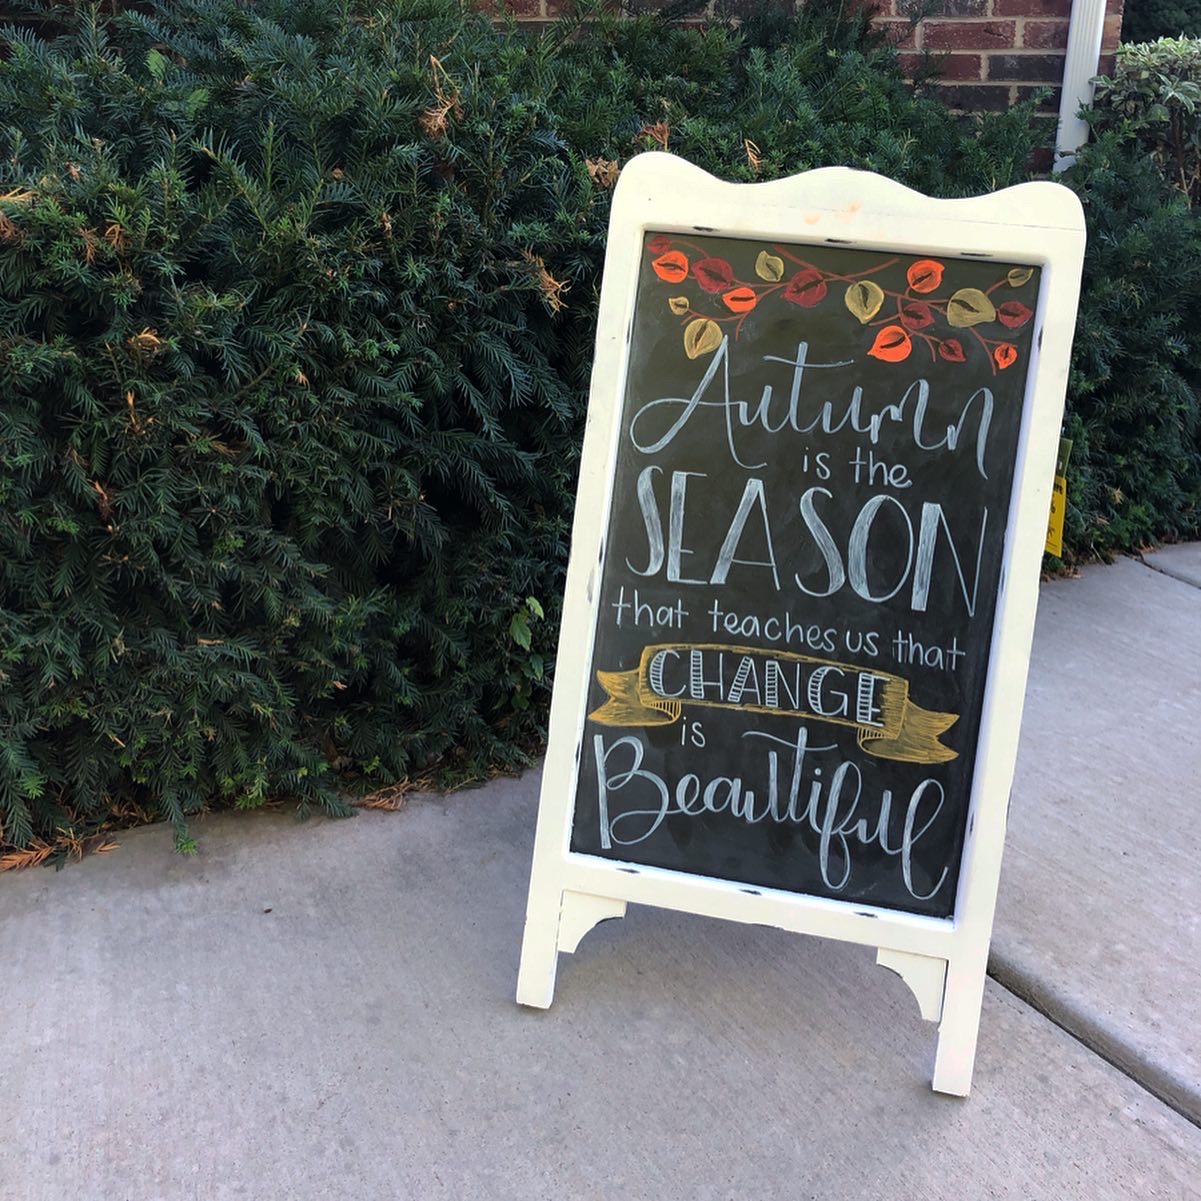 Autumn
is the
SEASON
that teaches us that
CHANGE
is
Beautiful